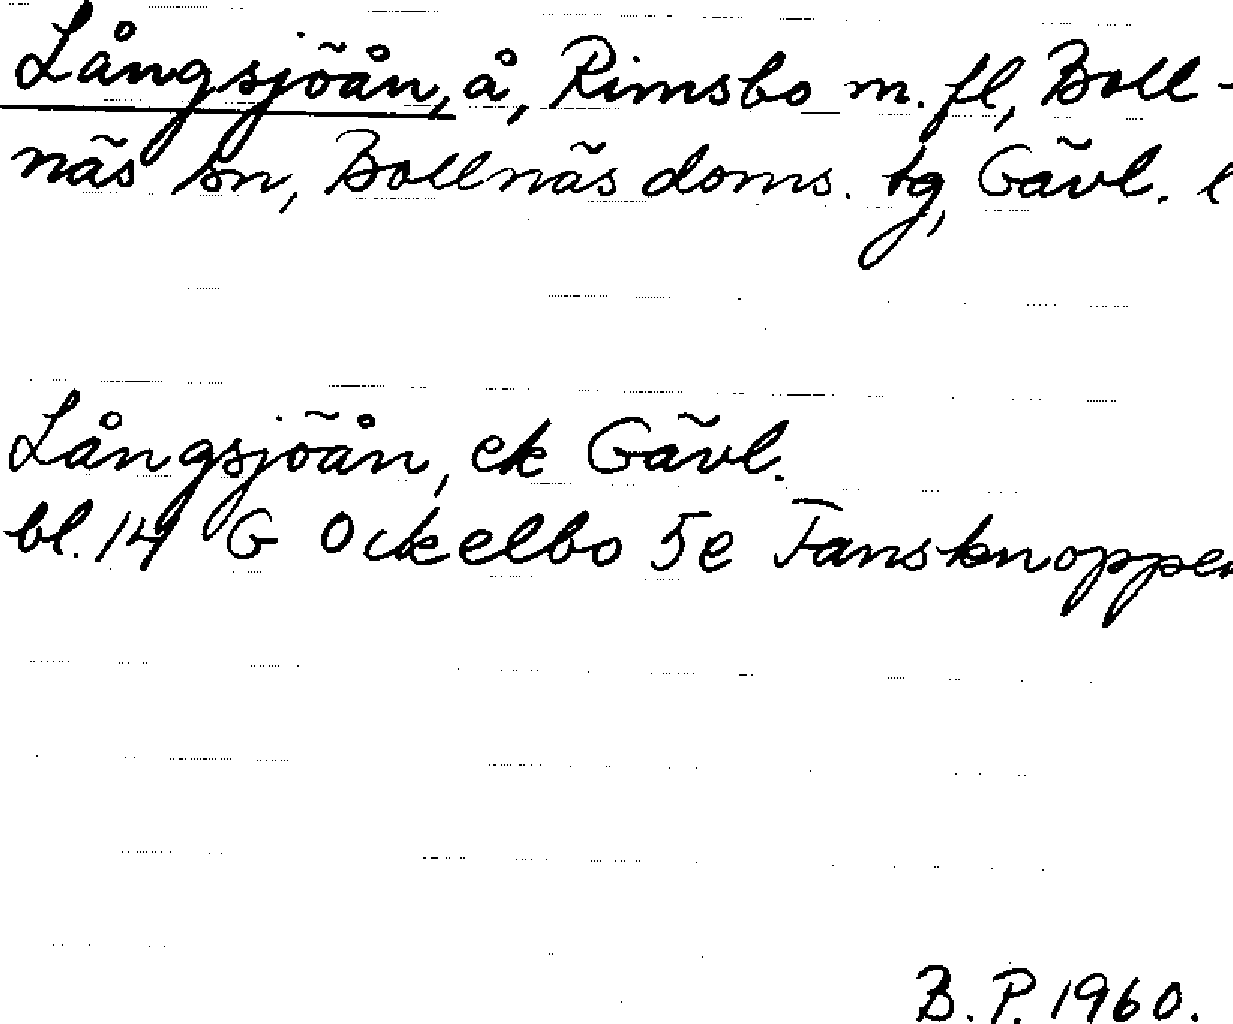 Långsjöån, å, Rimsbo m. fl, Boll-
näs sn, Bollnäs doms. tg, Gävl. l
Långsjöån, ek Gävl.
bl. 14 G Ockelbo 5e Fansknoppen
B. P. 1960.